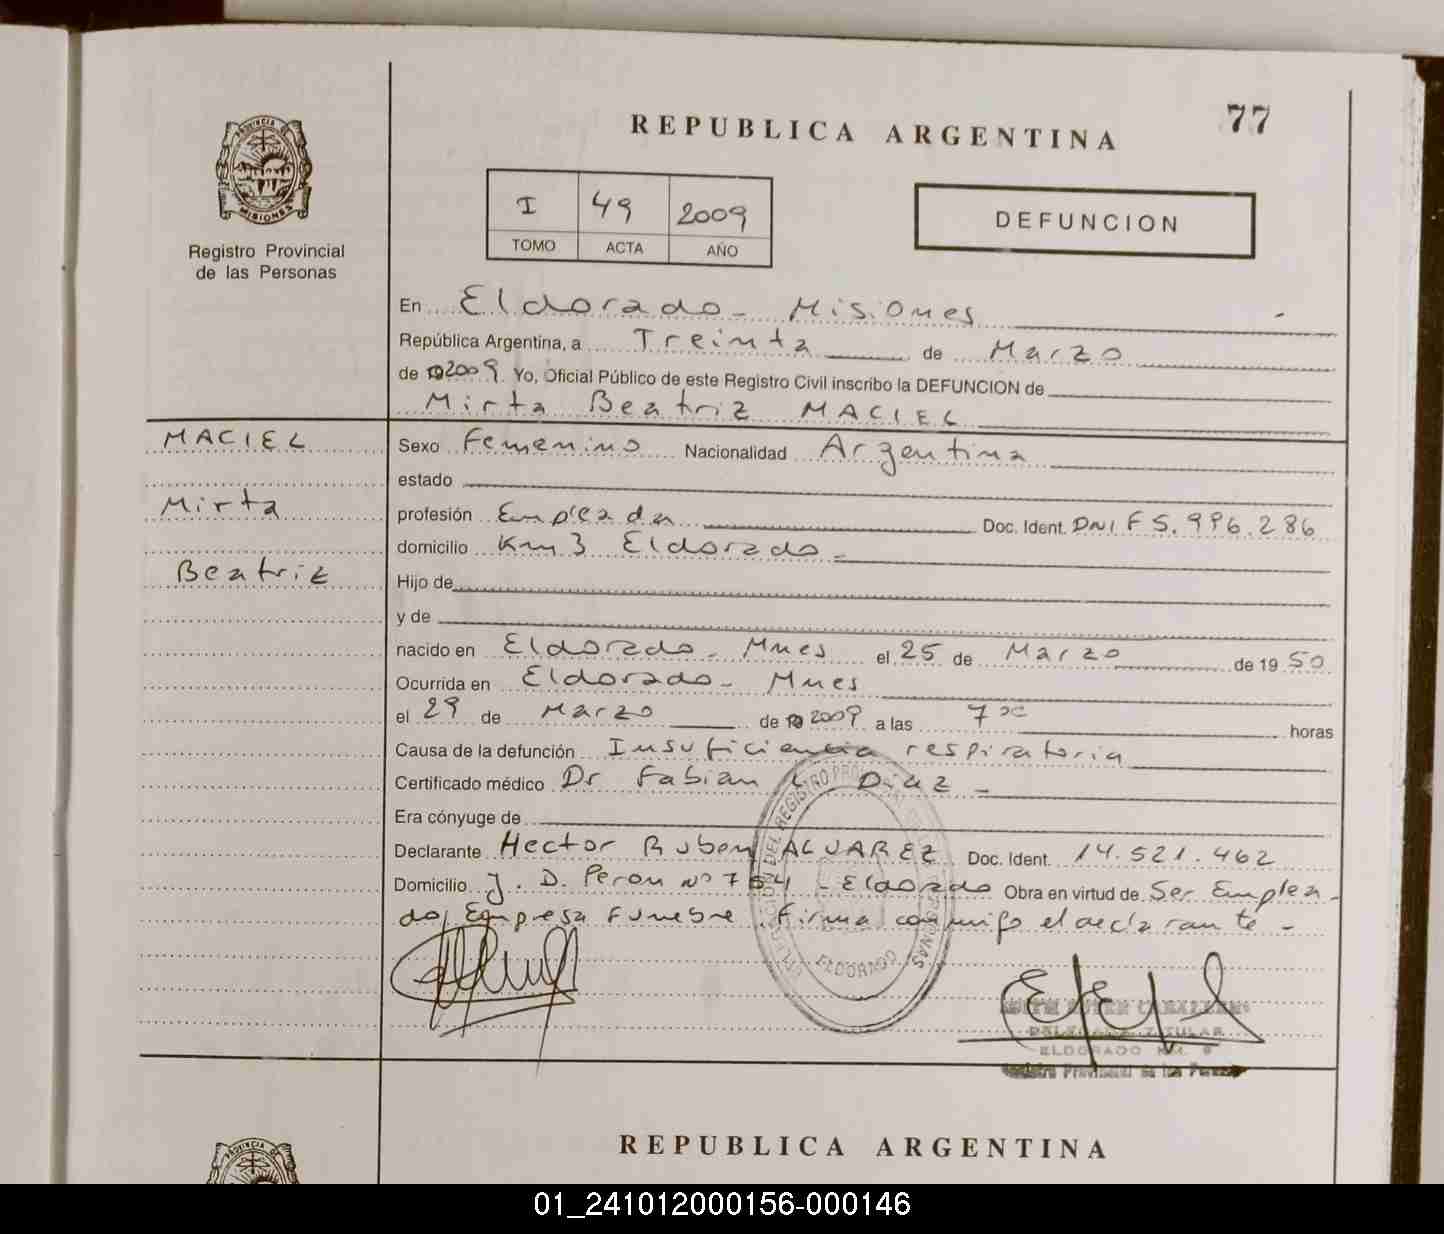 77
REPUBLICA ARGENTINA
PROVINCIA DE
MISIONES
Registro Provincial
de las Personas
I 49 2009
TOMO ACTA AÑO
DEFUNCION
En Eldorado - Misiones
República Argentina, a Treinta de Marzo
de 2009 Yo, Oficial Público de este Registro Civil inscribo la DEFUNCION de
Mirta Beatriz MACIEL
MACIEL
Mirta
Beatriz
Sexo Femenino Nacionalidad Argentina
estado
profesión Empleada Doc. Ident. DNI F 5.996.286
domicilio Km 3 Eldorado -
Hijo de
y de
nacido en Eldorado - Mnes el 25 de Marzo de 1950
Ocurrida en Eldorado - Mnes
el 29 de Marzo de 2009 a las 7 horas
Causa de la defunción Insuficiencia respiratoria
Certificado médico Dr Fabian Diaz -
Era cónyuge de
Declarante Hector Ruben ALVAREZ Doc. Ident. 14.521.462
Domicilio J. D. Peron Nº - Eldorado Obra en virtud de Ser Emplea-
do Empresa Funebre. Firma conmigo el declarante -
DEL REGISTRO
PERSONAS
ELDORADO
CABALLERO
TITULAR
ELDORADO KM.
Registro Provincial de las Personas
REPUBLICA ARGENTINA
PROVINCIA DE
01_241012000156-000146